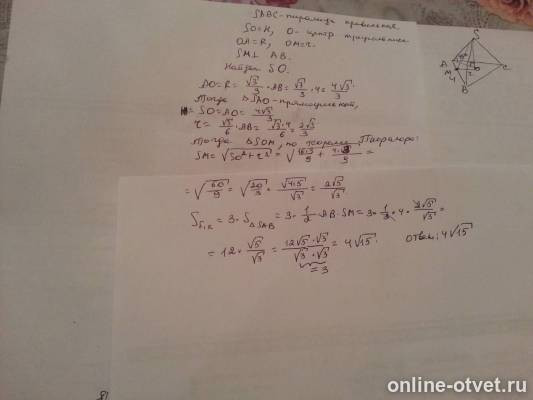 SABC - пирамида правильная,
SO=H, O - центр треугольника
OA=R, OM=r.
SM⊥ AB.
Найти SO.
AO=R = √3/3 · AB = √3/3 · 4 = 4√3/3.
Тогда ΔSAO - прямоугольный,
H = SO = AO = 4√3/3
r = √3/6 · AB = √3·4/6 = 2√3/3
Тогда ΔSOM, по теореме Пифагора:
SM = √(SO²+r²) = √(16·3/9 + 4·3/9) =
= √(60/9) = √(20/3) = √(4·5)/√3 = 2√5/√3
Sб.п. = 3 · SΔSAB = 3 · 1/2 · AB · SM = 3 · 1/2 · 4 · 2√5/√3 =
= 12 · √5/√3 = 12√5 · √3/√3 · √3 = 4√15. Ответ: 4√15
= 3
S
A
M
B
C
O
r
online-otvet.ru